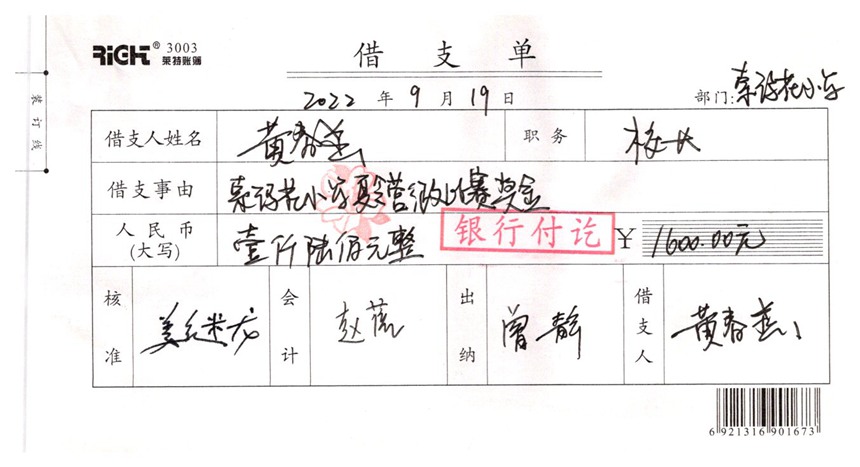 RiGHT® 3003
莱特账簿
借支单
2022 年 9 月 19 日
部门: 小学
装订线
借支人姓名 黄春 职务 校长
借支事由 小学夏令营 比赛奖金
人民币(大写) 壹仟陆佰元整 银行付讫 ¥ 1600.00元
核准 会计 赵 出纳 曾静 借支人 黄春燕
6 921316 901673